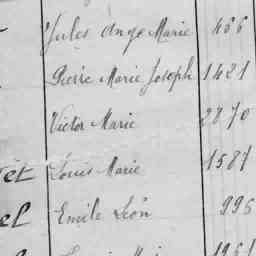 Jules Ange Marie 466
Pierre Marie Joseph 1421
Victor Marie 2870
et Louis Marie 1587
el Emile Léon 995